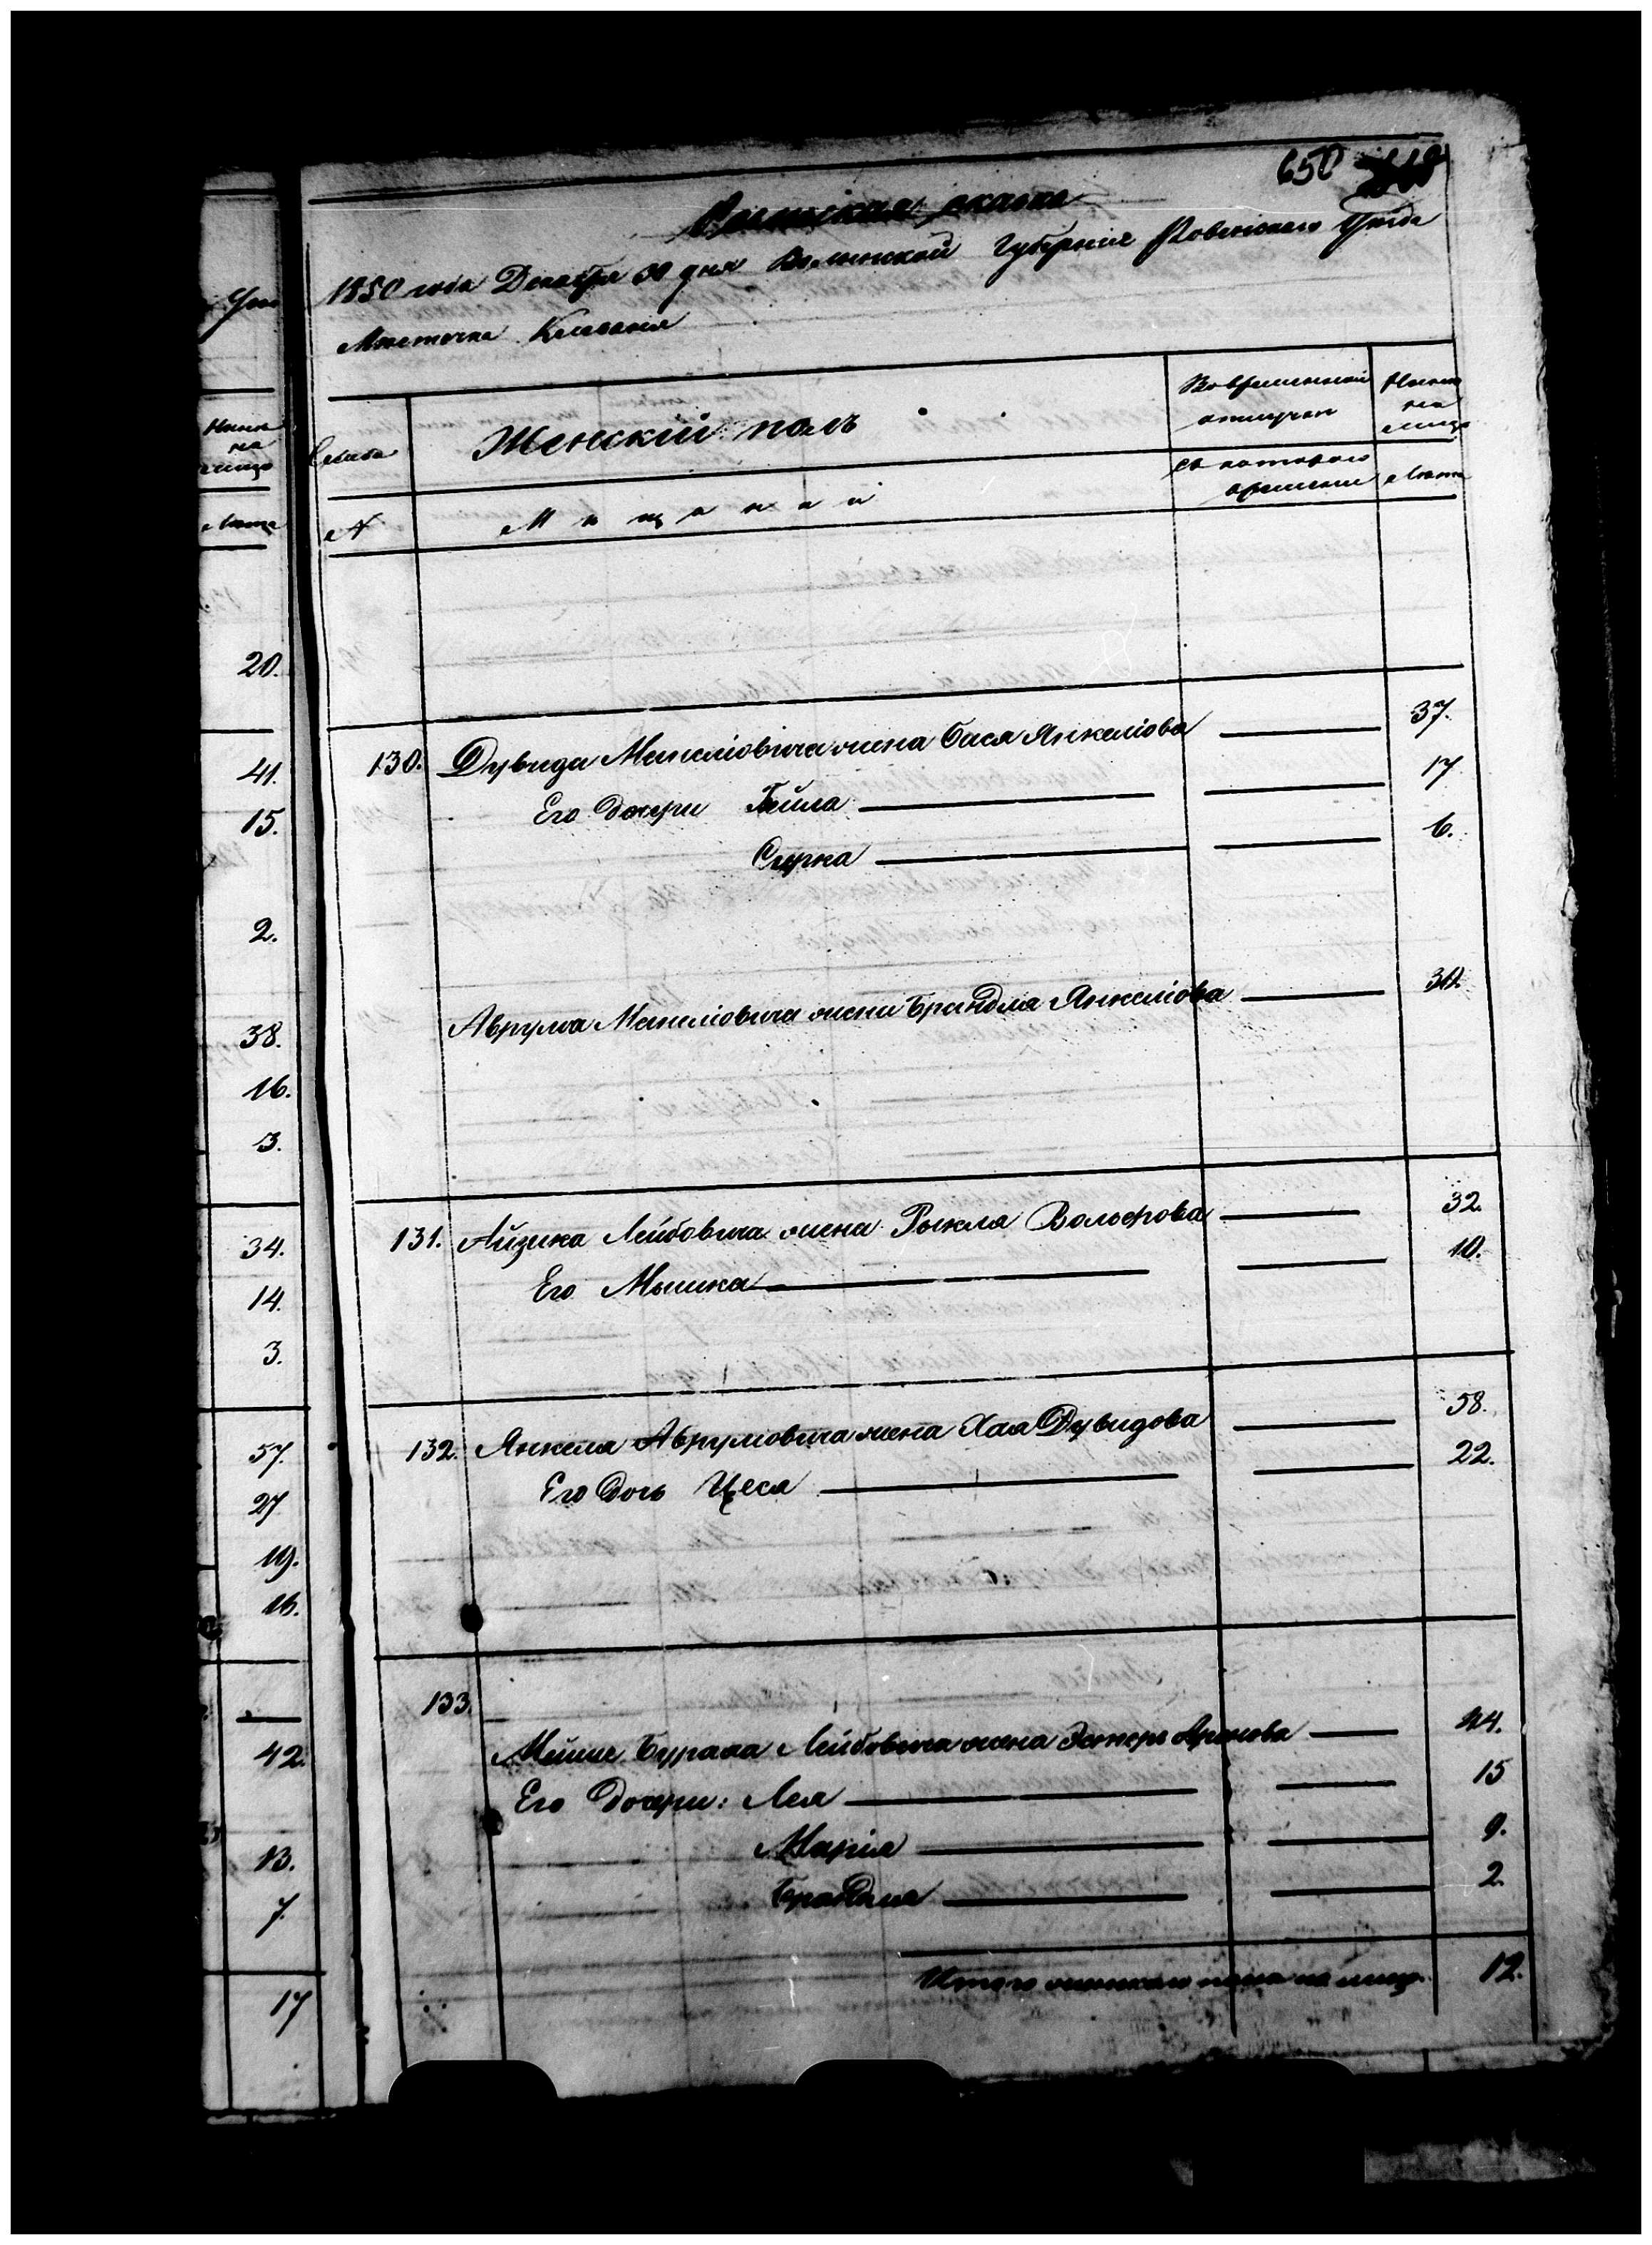 650
Ревизская сказка
1850 года Декабря 30 дня Волынской Губернiи Ровенского Уезда
Местечка Клеваня
Семьи
Женскiй полъ
Во временной отлучке
Ныне на лицо
№
Мещанки
Съ котораго времени
Лета
130. Дувида Мошковича жена Бася Янкелiова 37.
Его дочери Бейла 17
Сурка 6.
Аврума жена Брандля Янкелiова 30.
131. Айзика Лейбовича жена Рыкля Вольфова 32.
Его Мышка 10.
132. Янкеля Аврумовича жена Хая Дувидова 58.
Его дочь Цеся 22.
133.
Мейше Бураха Лейбовича жена Эстеръ Аронова 44.
Его дочери: Лея 15
Марiя 9.
Брандля 2.
Итого женскаго пола на лицо. 12.
Ныне
на
лицо
Лета
20.
41.
15.
2.
38.
16.
3.
34.
14.
3.
57.
27
19.
16.
42.
13.
7.
17